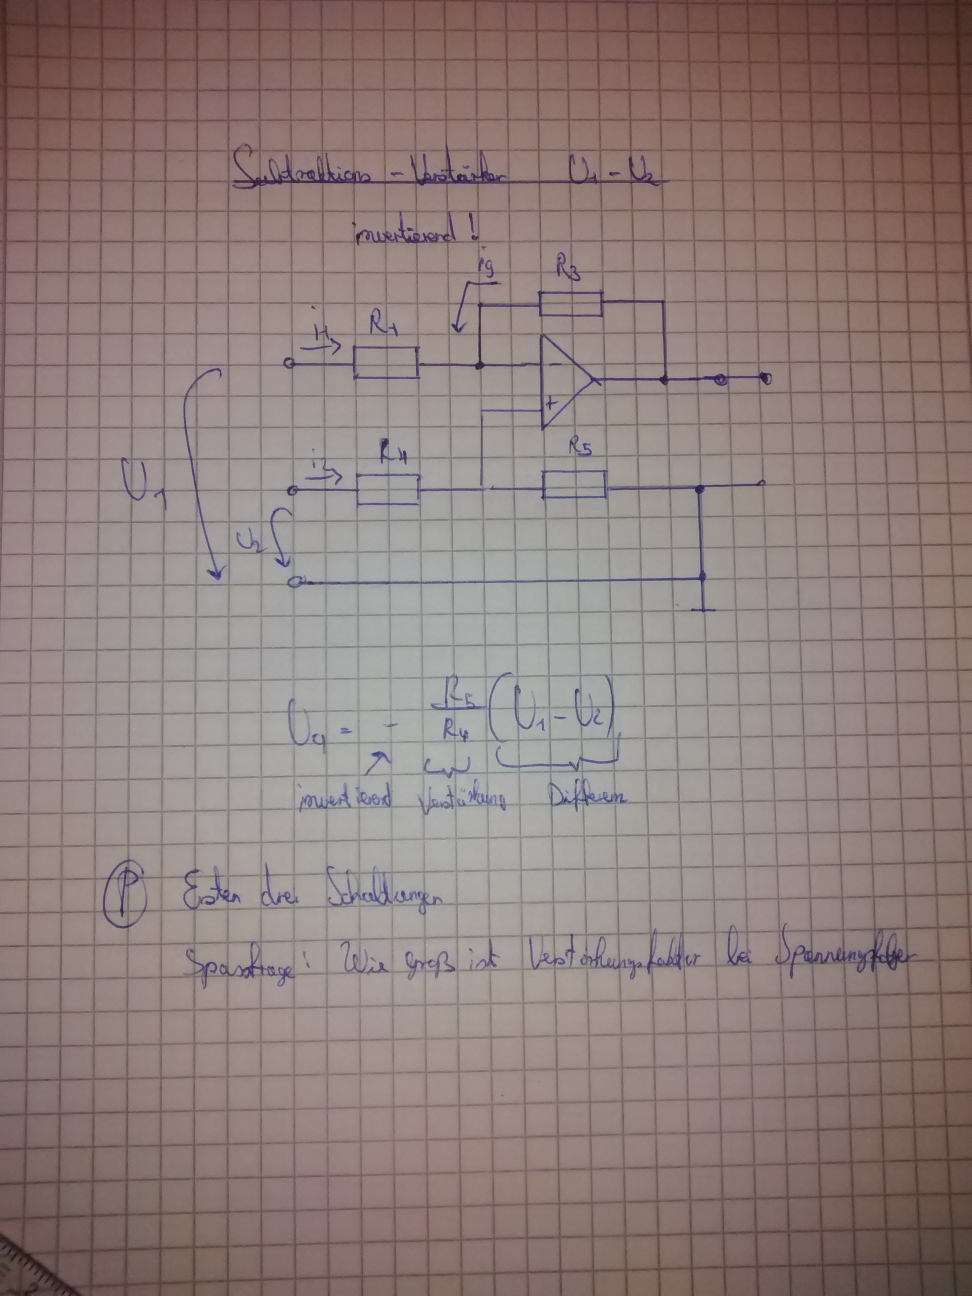 Subtraktions - Verstärker U1 - U2
invertierend !
ig
R3
i1
R1
-
+
U1
i2
R4
R5
U2
Ua = - R5/R4 (U1 - U2)
invertierend Verstärkung Differenz
P Ersten drei Schaltungen
Spassfrage: Wie groß ist Verstärkungsfaktor bei Spannungsfolger